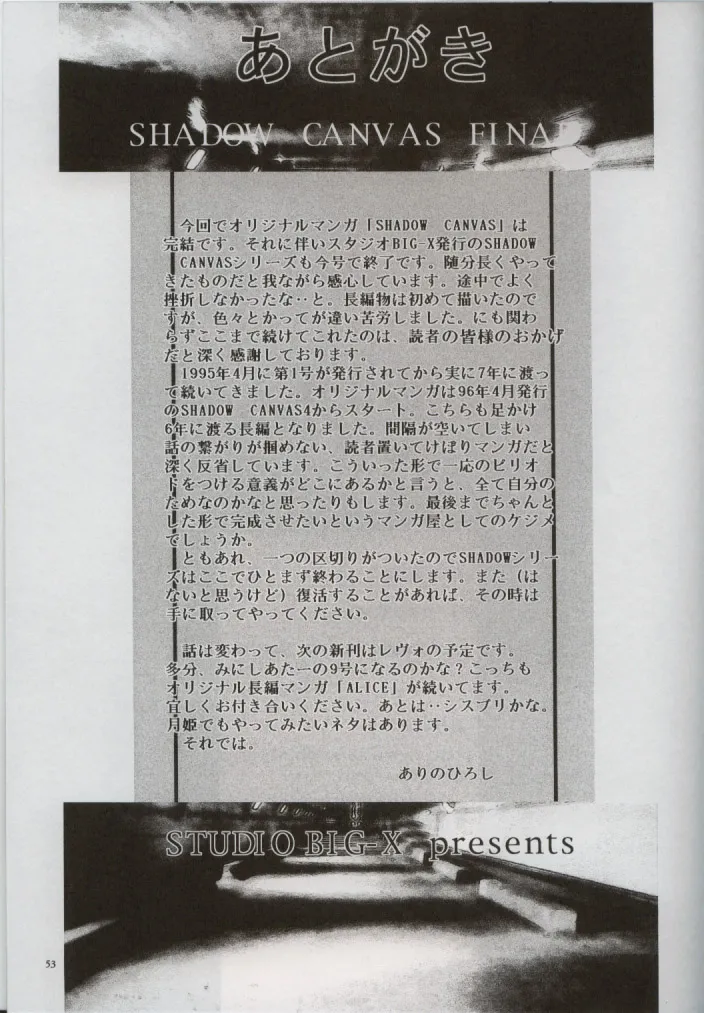 あとがき
SHADOW CANVAS FINAL
今回でオリジナルマンガ「SHADOW CANVAS」は
完結です。それに伴いスタジオBIG-X発行のSHADOW
CANVASシリーズも今号で終了です。随分長くやって
きたものだと我ながら感心しています。途中でよく
挫折しなかったな‥と。長編物は初めて描いたので
すが、色々とかってが違い苦労しました。にも関わ
らずここまで続けてこれたのは、読者の皆様のおかげ
だと深く感謝しております。
1995年4月に第1号が発行されてから実に7年に渡っ
て続いてきました。オリジナルマンガは96年4月発行
のSHADOW CANVAS4からスタート。こちらも足かけ
6年に渡る長編となりました。間隔が空いてしまい
話の繋がりが掴めない、読者置いてけぼりマンガだと
深く反省しています。こういった形で一応のピリオ
ドをつける意義がどこにあるかと言うと、全て自分の
ためなのかなと思ったりもします。最後までちゃんと
した形で完成させたいというマンガ屋としてのケジメ
でしょうか。
ともあれ、一つの区切りがついたのでSHADOWシリー
ズはここでひとまず終わることにします。また（は
ないと思うけど）復活することがあれば、その時は
手に取ってやってください。
話は変わって、次の新刊はレヴォの予定です。
多分、みにしあたーの9号になるのかな？こっちも
オリジナル長編マンガ「ALICE」が続いてます。
宜しくお付き合いください。あとは‥シスプリかな。
月姫でもやってみたいネタはあります。
それでは。
ありのひろし
STUDIO BIG-X presents
53